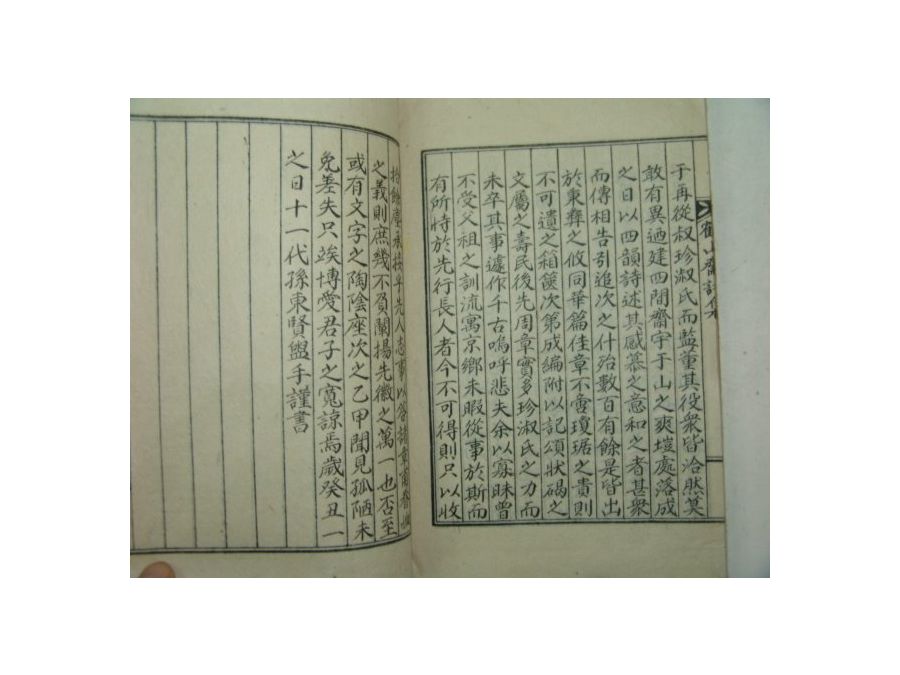 鶴山齋詩集
于再從叔珍淑氏而監董其役衆皆洽然莫
敢有異迺建四間齋宇于山之爽塏處落成
之日以四韻詩述其感慕之意和之者甚衆
而傳相告引追次之什殆數百有餘是皆出
於秉彛之攸同華篇佳章不啻瓊琚之貴則
不可遺之箱篋次第成編附以記頌狀碣之
文屬之壽民後先周章實多珍淑氏之力而
未卒其事遽作千古嗚呼悲夫余以寡昧曾
不受父祖之訓流寓京鄕未暇從事於斯而
有所恃於先行長人者今不可得則只以收
拾餘 承接乎先人志事以答諸章甫
之義則庶幾不負闡揚先徽之萬一也否至
或有文字之陶陰座次之乙甲聞見孤陋未
免差失只竢博愛君子之寬諒焉歲癸丑一
之日十一代孫東賢盥手謹書